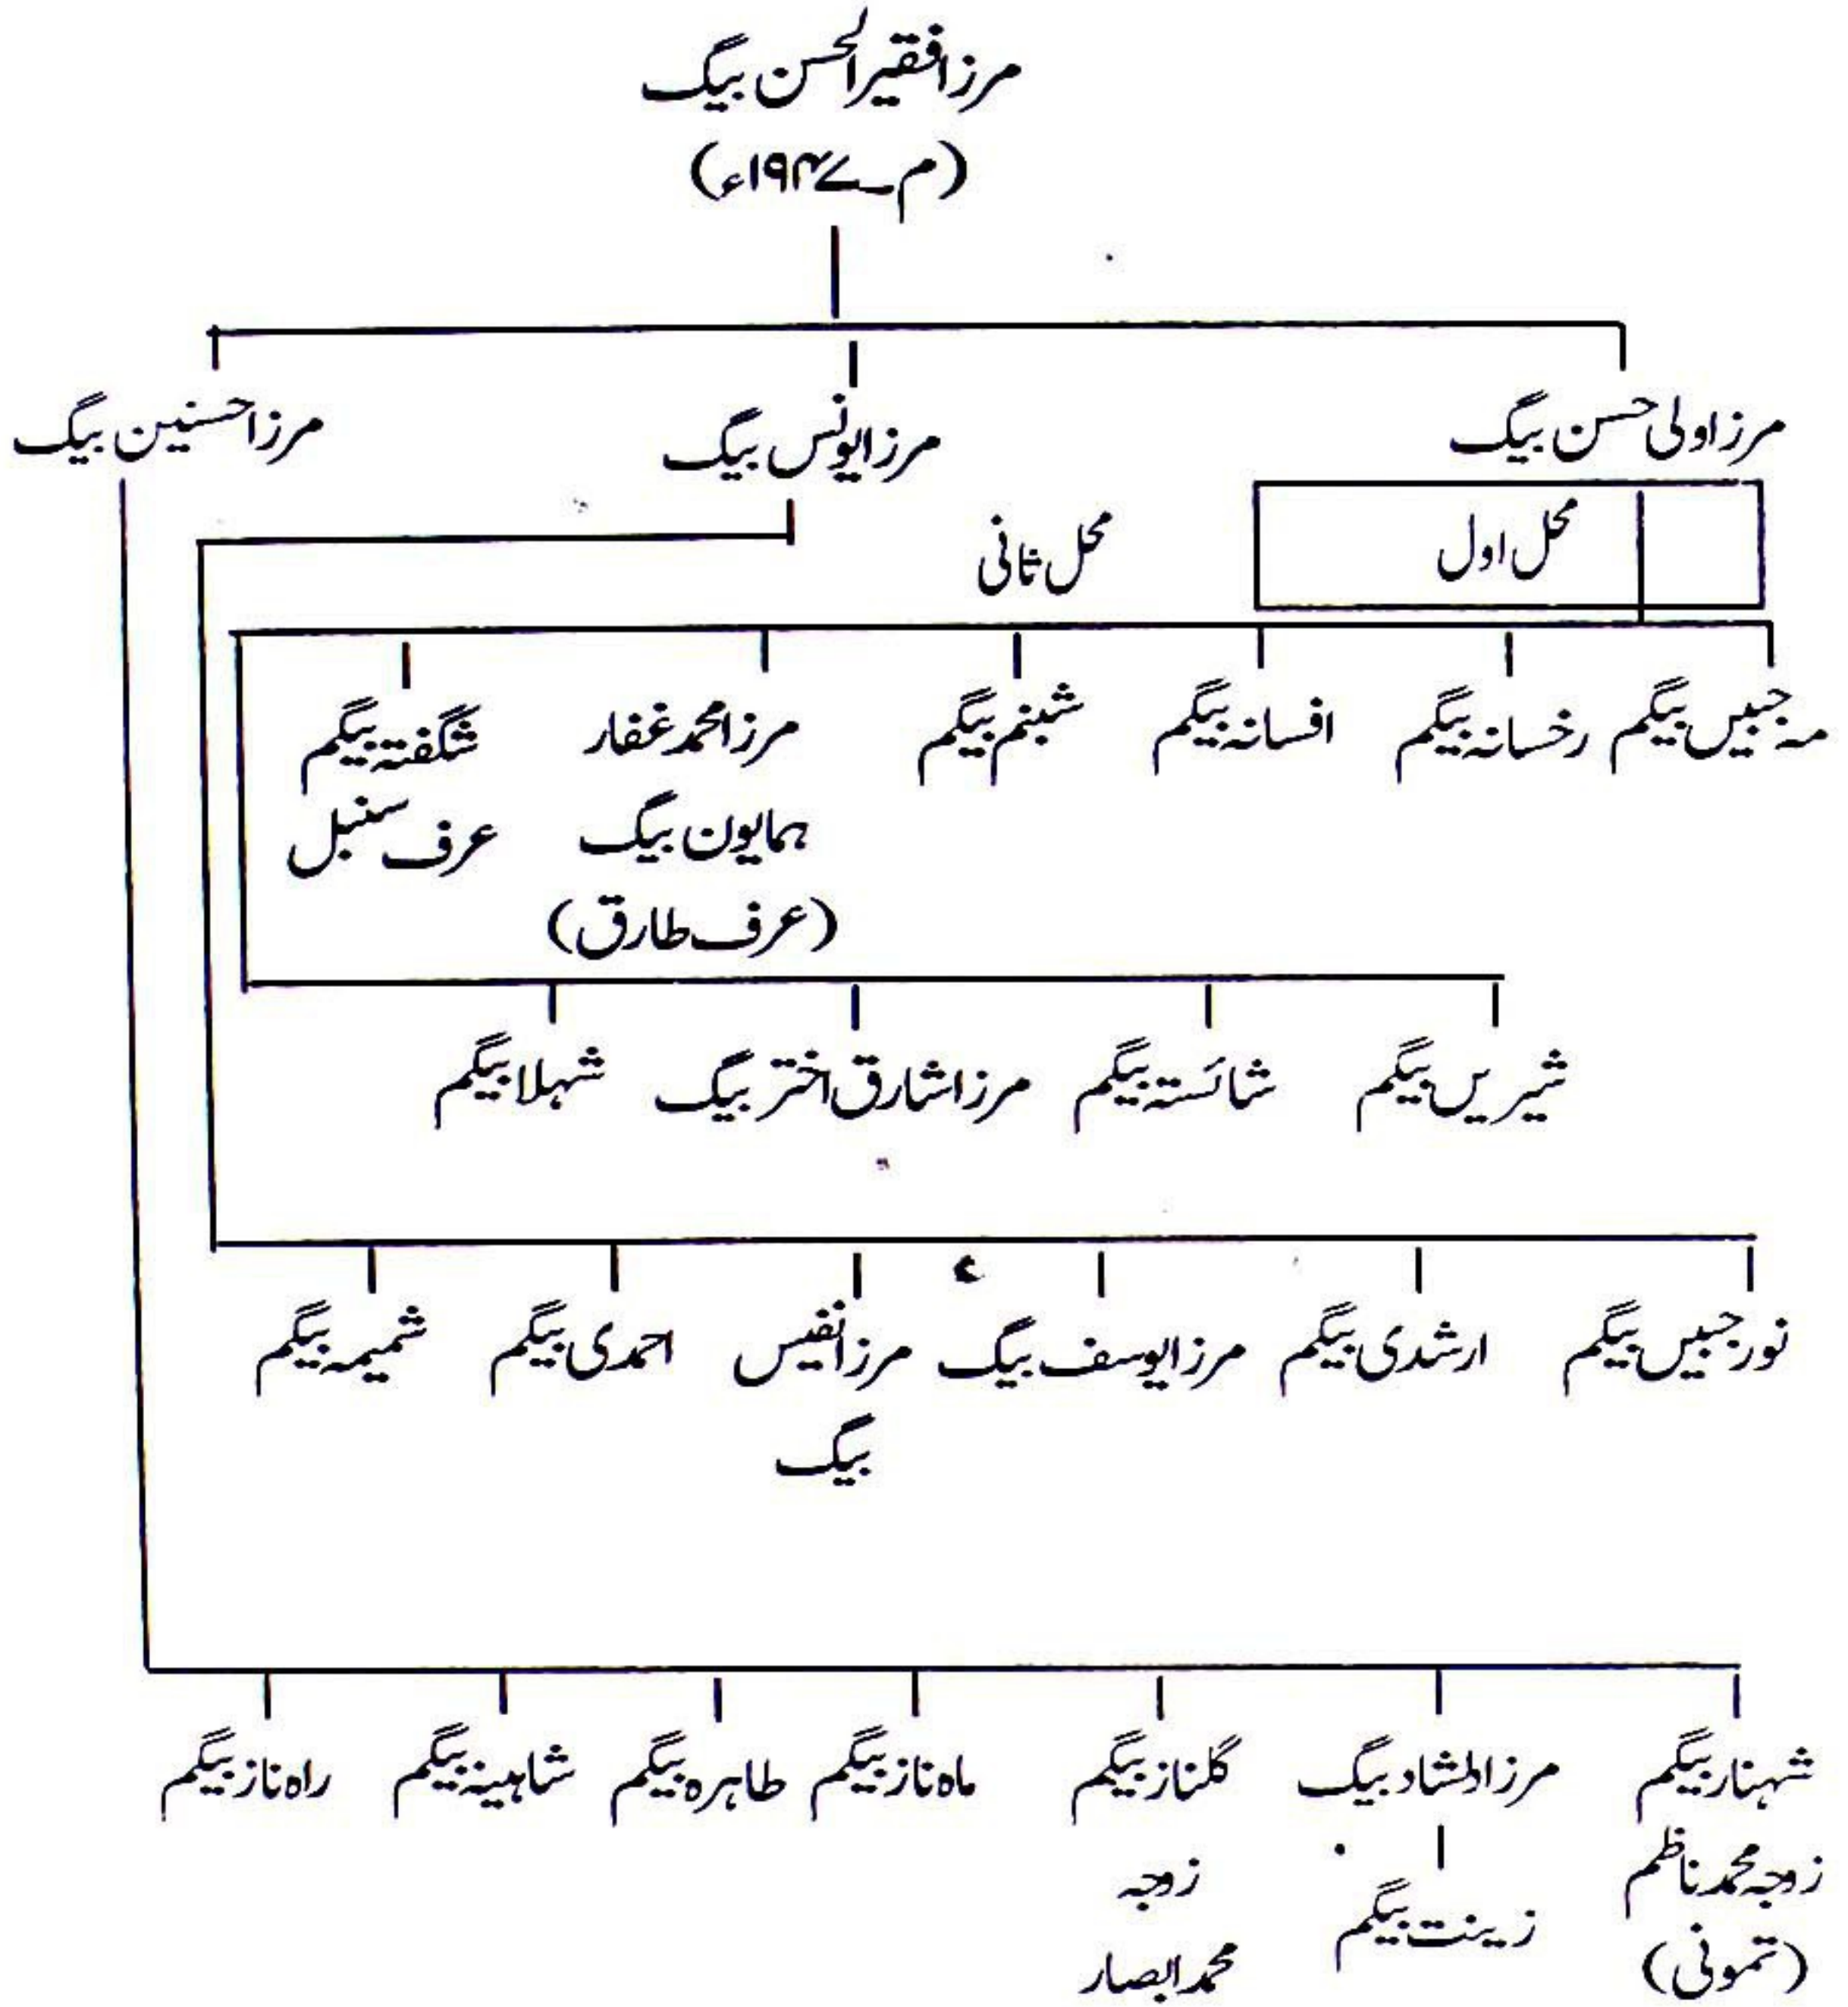 مرزا فقیر الحسن بیگ
(م ۱۹۴۷ء)
مرزا ولی حسن بیگ
مرزا یونس بیگ
مرزا حسنین بیگ
محل اول
محل ثانی
مہ جبیں بیگم
رخسانہ بیگم
افسانہ بیگم
شبنم بیگم
مرزا محمد غفار
ہمایون بیگ
(عرف طارق)
شگفتہ بیگم
عرف سنبل
شیریں بیگم
شائستہ بیگم
مرزا شارق اختر بیگ
شہلا بیگم
نور جبیں بیگم
ارشدی بیگم
مرزا یوسف بیگ
مرزا نفیس
بیگ
احمدی بیگم
شمیمہ بیگم
شہنار بیگم
زوجہ محمد ناظم
(تمونی)
مرزا دلشاد بیگ
زینت بیگم
گلناز بیگم
زوجہ
محمد ابصار
ماہ ناز بیگم
طاہرہ بیگم
شاہینہ بیگم
راہ ناز بیگم